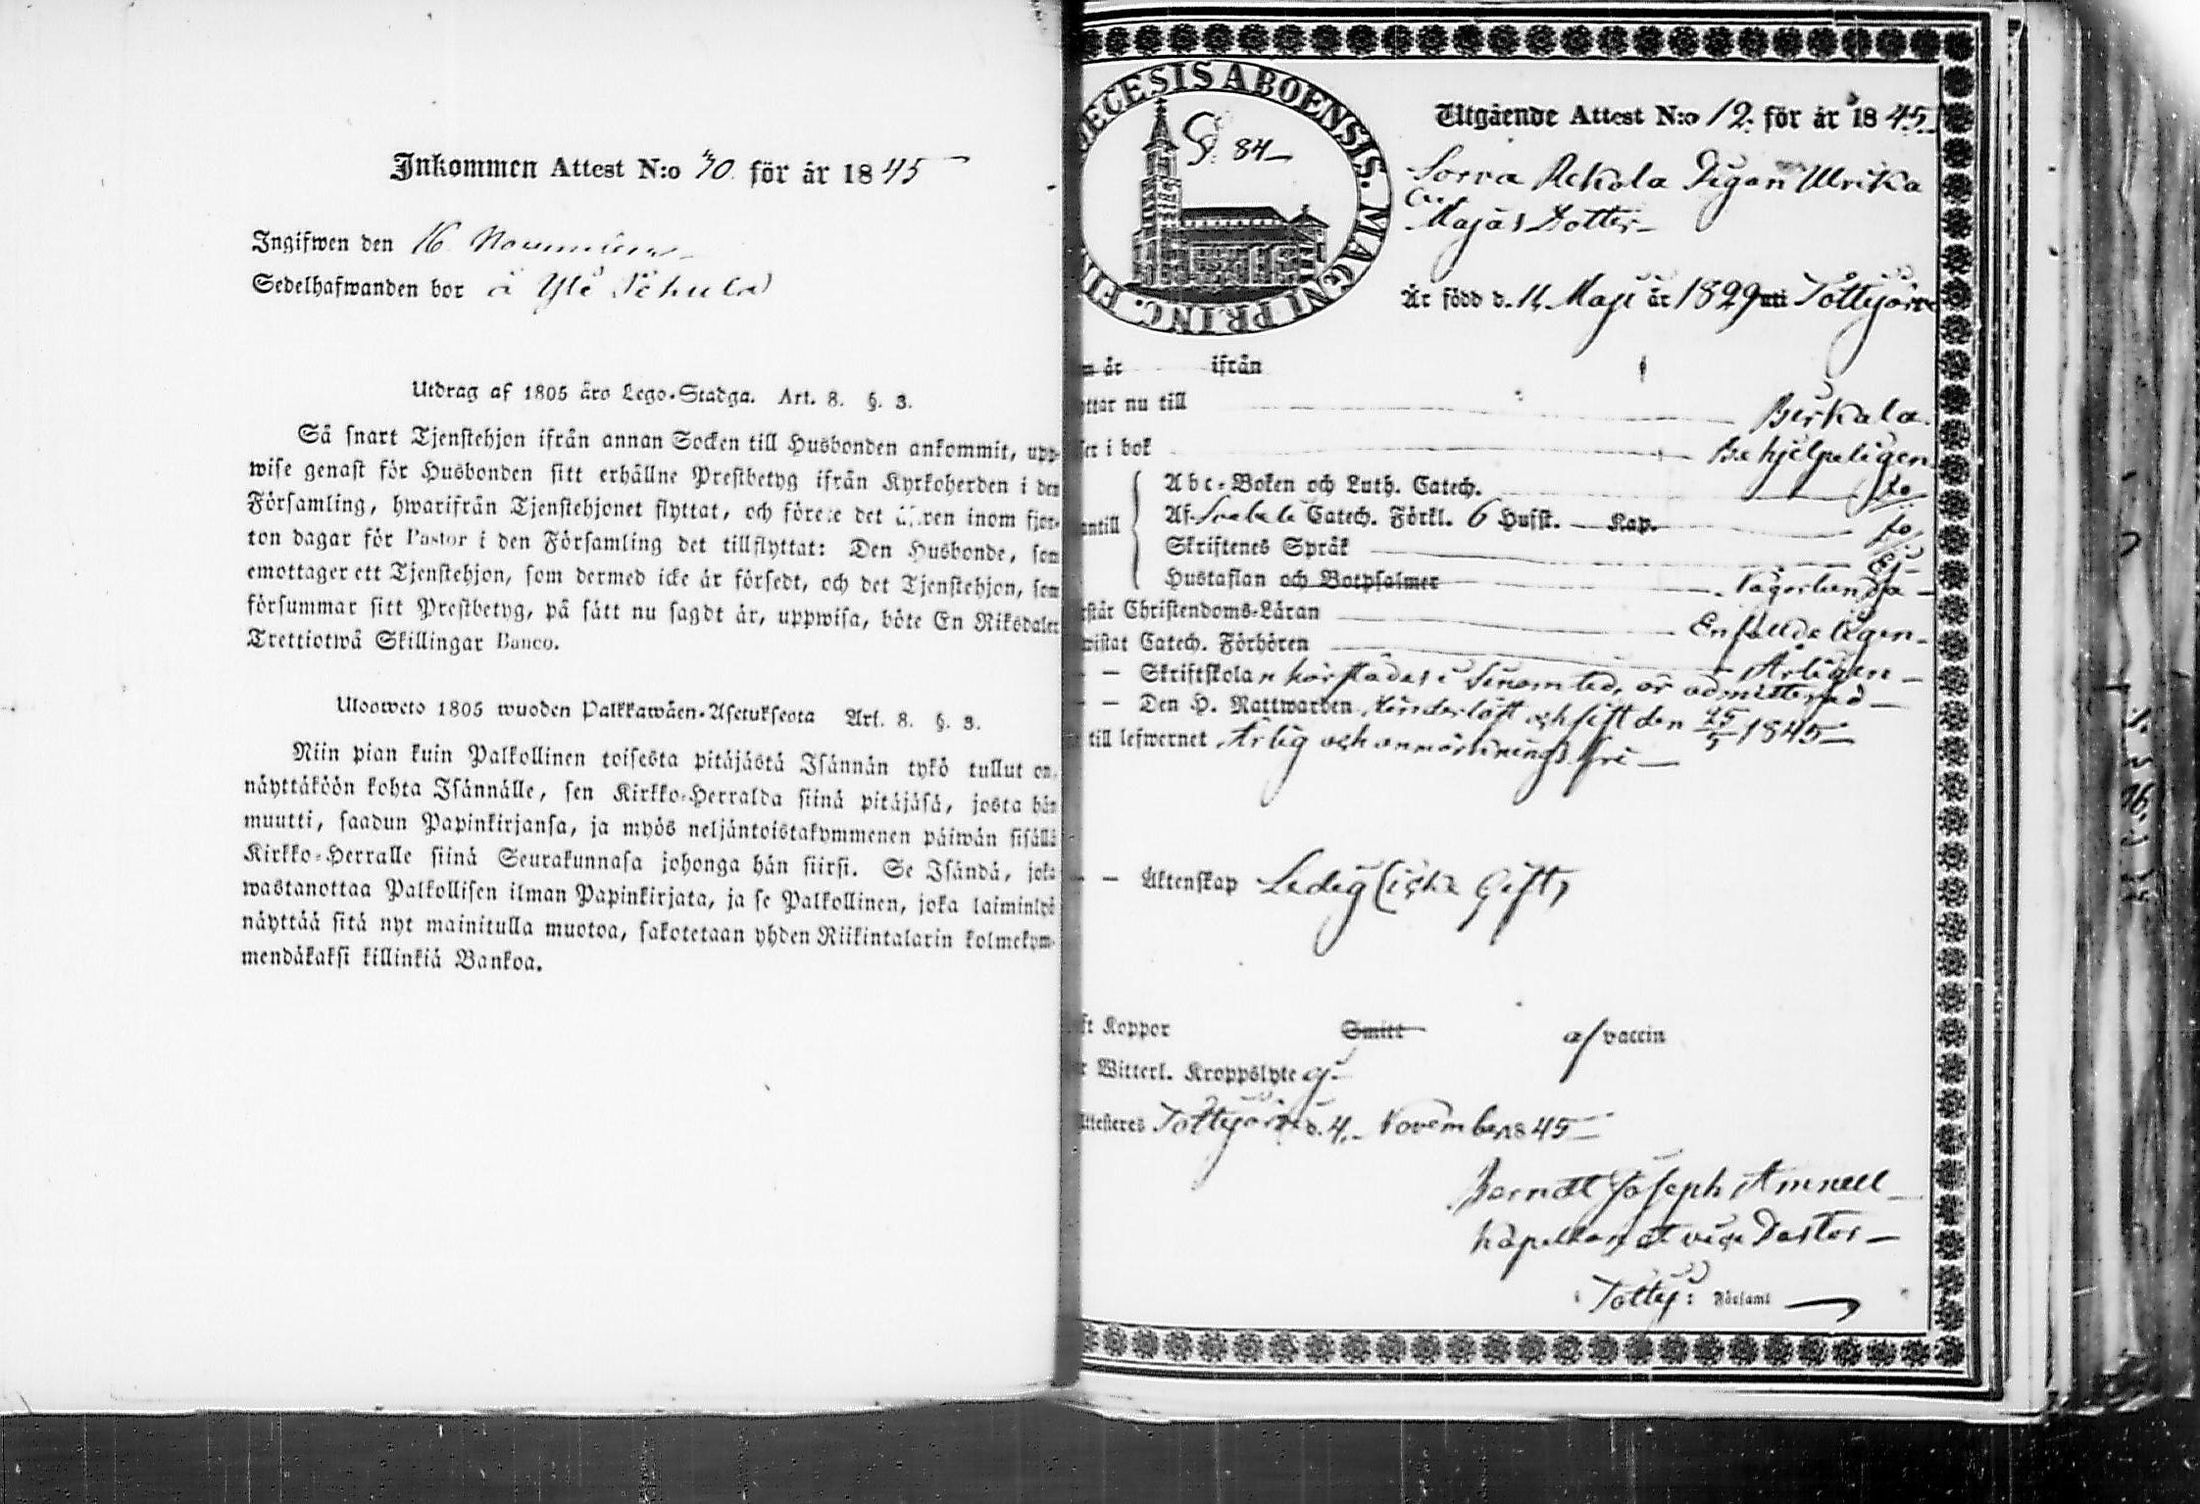 Inkommen Attest N:o 30. för år 1845
Ingifwen den 16 November
Sedelhafwanden bor å Yle
Utdrag af 1805 års Lego-Stadga. Art. 8. §. 3.
Så snart Tjenstehjon ifrån annan Socken till Husbonden ankommit, upp-
wise genast för Husbonden sitt erhållne Prestbetyg ifrån Kyrkoherden i den
Församling, hwarifrån Tjenstehjonet flyttat, och förete det äfwen inom fjor-
ton dagar för Pastor i den Församling det tillflyttat: Den Husbonde, som
emottager ett Tjenstehjon, som dermed icke är försedt, och det Tjenstehjon, som
försummar sitt Prestbetyg, på sätt nu sagdt är, uppwisa, böte En Riksdaler
Trettiotwå Skillingar Banco.
Ulosweto 1805 wuoden Palkkawäen-Asetuksesta Art. 8. §. 3.
Niin pian kuin Palkollinen toisesta pitäjästä Isännän tykö tullut on,
näyttäköön kohta Isännälle, sen Kirkko-Herralda siinä pitäjäsä, josta hän
muutti, saadun Papinkirjansa, ja myös neljäntoistakymmenen päiwän sisällä
Kirkko-Herralle siinä Seurakunnasa johonga hän siirsi. Se Isändä, joka
wastanottaa Palkollisen ilman Papinkirjata, ja se Palkollinen, joka laiminlyö
näyttää sitä nyt mainitulla muotoa, sakotetaan yhden Riikintalarin kolmekym-
mendäkaksi killinkiä Bankoa.
ECESIS ABOENSIS. MAGNI PRINC. FI
84
Utgående Attest N:o 12. för år 1845
Sorva Rekola Pigan Ulrika
Majas Dotter
Är född d. 11 Maji år 1829 uti Tottijärvi
år ifrån
ttar nu till Birkala.
ser i bok Behjelpeligen
Abc-Boken och Luth. Catech. do
Af Svebeli Catech. Förkl. 6 Hufst. Kap. do
Skriftenes Språk Ej
Hustaflan och Botpsalmer Någorlunda
rstår Christendoms-Läran Enfaldeligen
wistat Catech. Förhören Årligen
– – Skriftskolan härstädes i sinom tid, är admitterad
– – Den H. Nattwarden och sist den 25/5 1845
till lefwernet Ärlig och anmärkningsfri
– – Äktenskap Ledig
ft Koppor Smitt af vaccin
r Witterl. Kroppslyte ej
Attesteras Tottijärvi d. 4. November 1845
Berndt Joseph Amnell
Kapellan et vice Pastor
Tottij: Församl